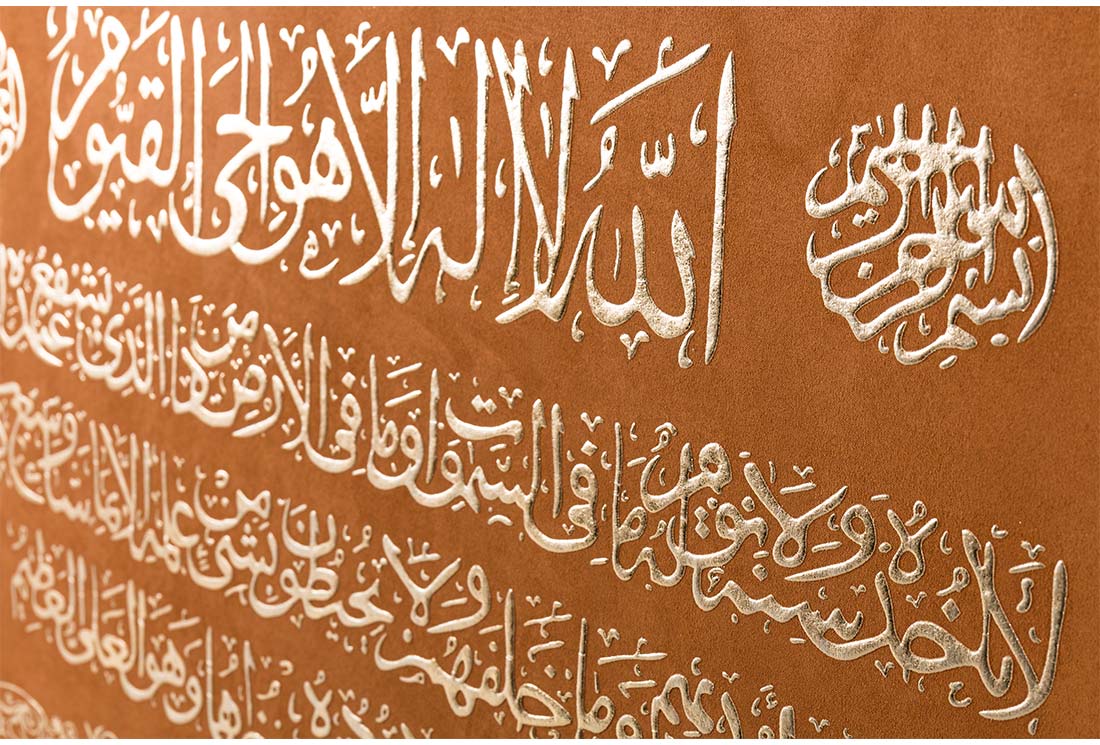 بسم الله الرحمن الرحيم
ٱللَّهُ لَآ إِلَٰهَ إِلَّا هُوَ ٱلْحَىُّ ٱلْقَيُّومُ
لَا تَأْخُذُهُ سِنَةٌ وَلَا نَوْمٌ لَهُ مَا فِى السَّمٰوَاتِ وَمَا فِى الْأَرْضِ مَنْ ذَا الَّذِى يَشْفَعُ عِنْدَهُ
وَمَا خَلْفَهُمْ وَلَا يُحِيطُونَ بِشَىْءٍ مِنْ عِلْمِهِ إِلَّا بِمَا شَاءَ وَسِعَ
وَهُوَ الْعَلِىُّ الْعَظِيمُ